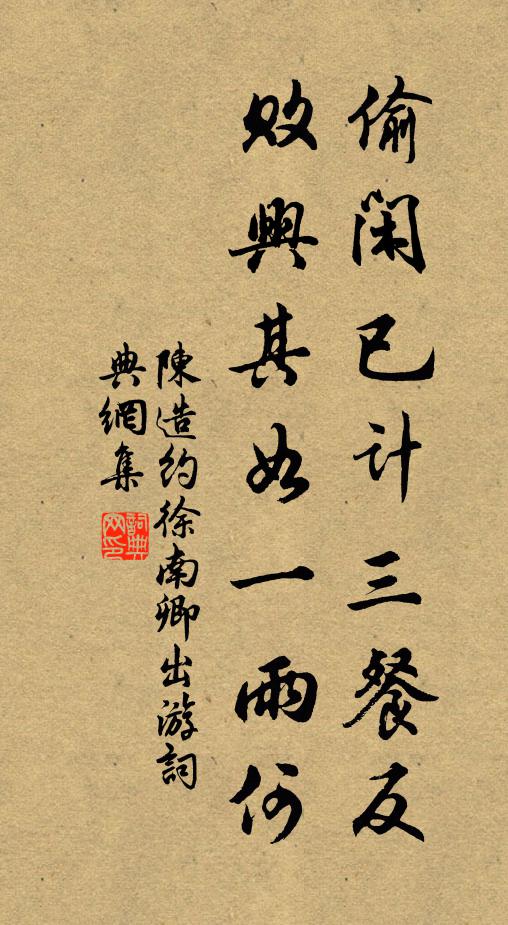 偷闲已计三餐反
败興其如一雨何
陳造約徐南卿出游詞
典網集
詞典网印